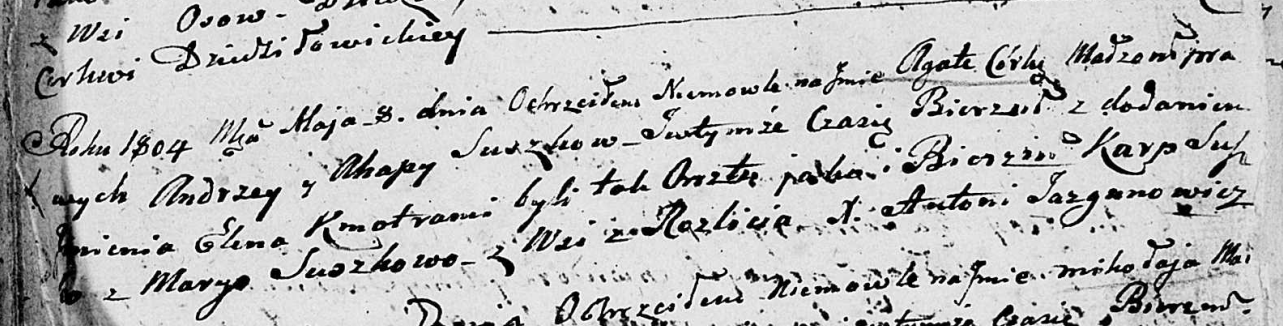 z Wsi Osow-
Cerkwi Dziedziłowickiey
Roku 1804 Mca Maja 8. dnia Ochrzciłem Niemowle na Jmie Agatę Córkę Madzonk̄ pra
wych Andrzey y Ahapy Suszkow - Jwtymże Czasię Bierzm̄ z dodaniem
Jmienia Elena Kmotrami byli tak Chrztu jako i Bierzm̄ Karp Susz
ko z Maryo Suszkowo - z Wsi z Rozlicia X. Antoni Jazgunowicz
Ochrzciłem Niemowle na Jmie mikołaja Ma
Czasię Bierzm̄